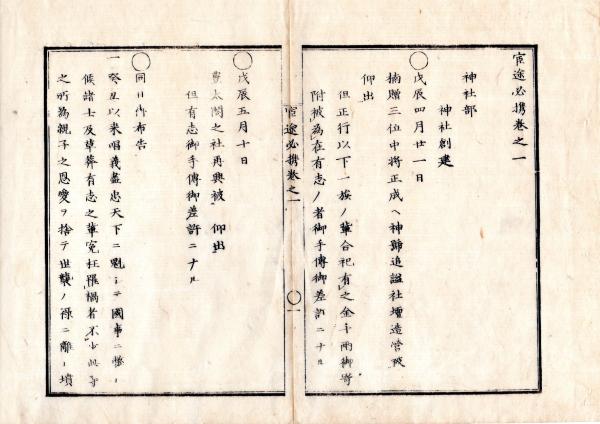 宦途必携巻之一
神社部
神社創建
戊辰四月廿一日
楠贈三位中将正成ヘ神号追諡社壇造営被
仰出
但正行以下一族ノ輩合祀有之金千両御寄
附被為在有志ノ者御手傳御差許ニナル
宦途必携巻之一
一
戊辰五月十日
豊太閤之社再興被 仰出
但有志御手傳御差許ニナル
同日御布告
一癸丑以来唱義盡忠天下ニ魁シテ國事ニ斃レ
候諸士及草莽有志之輩冤枉罹禍者不少此等
之所為親子之恩愛ヲ捨テ世襲ノ禄ニ離レ墳